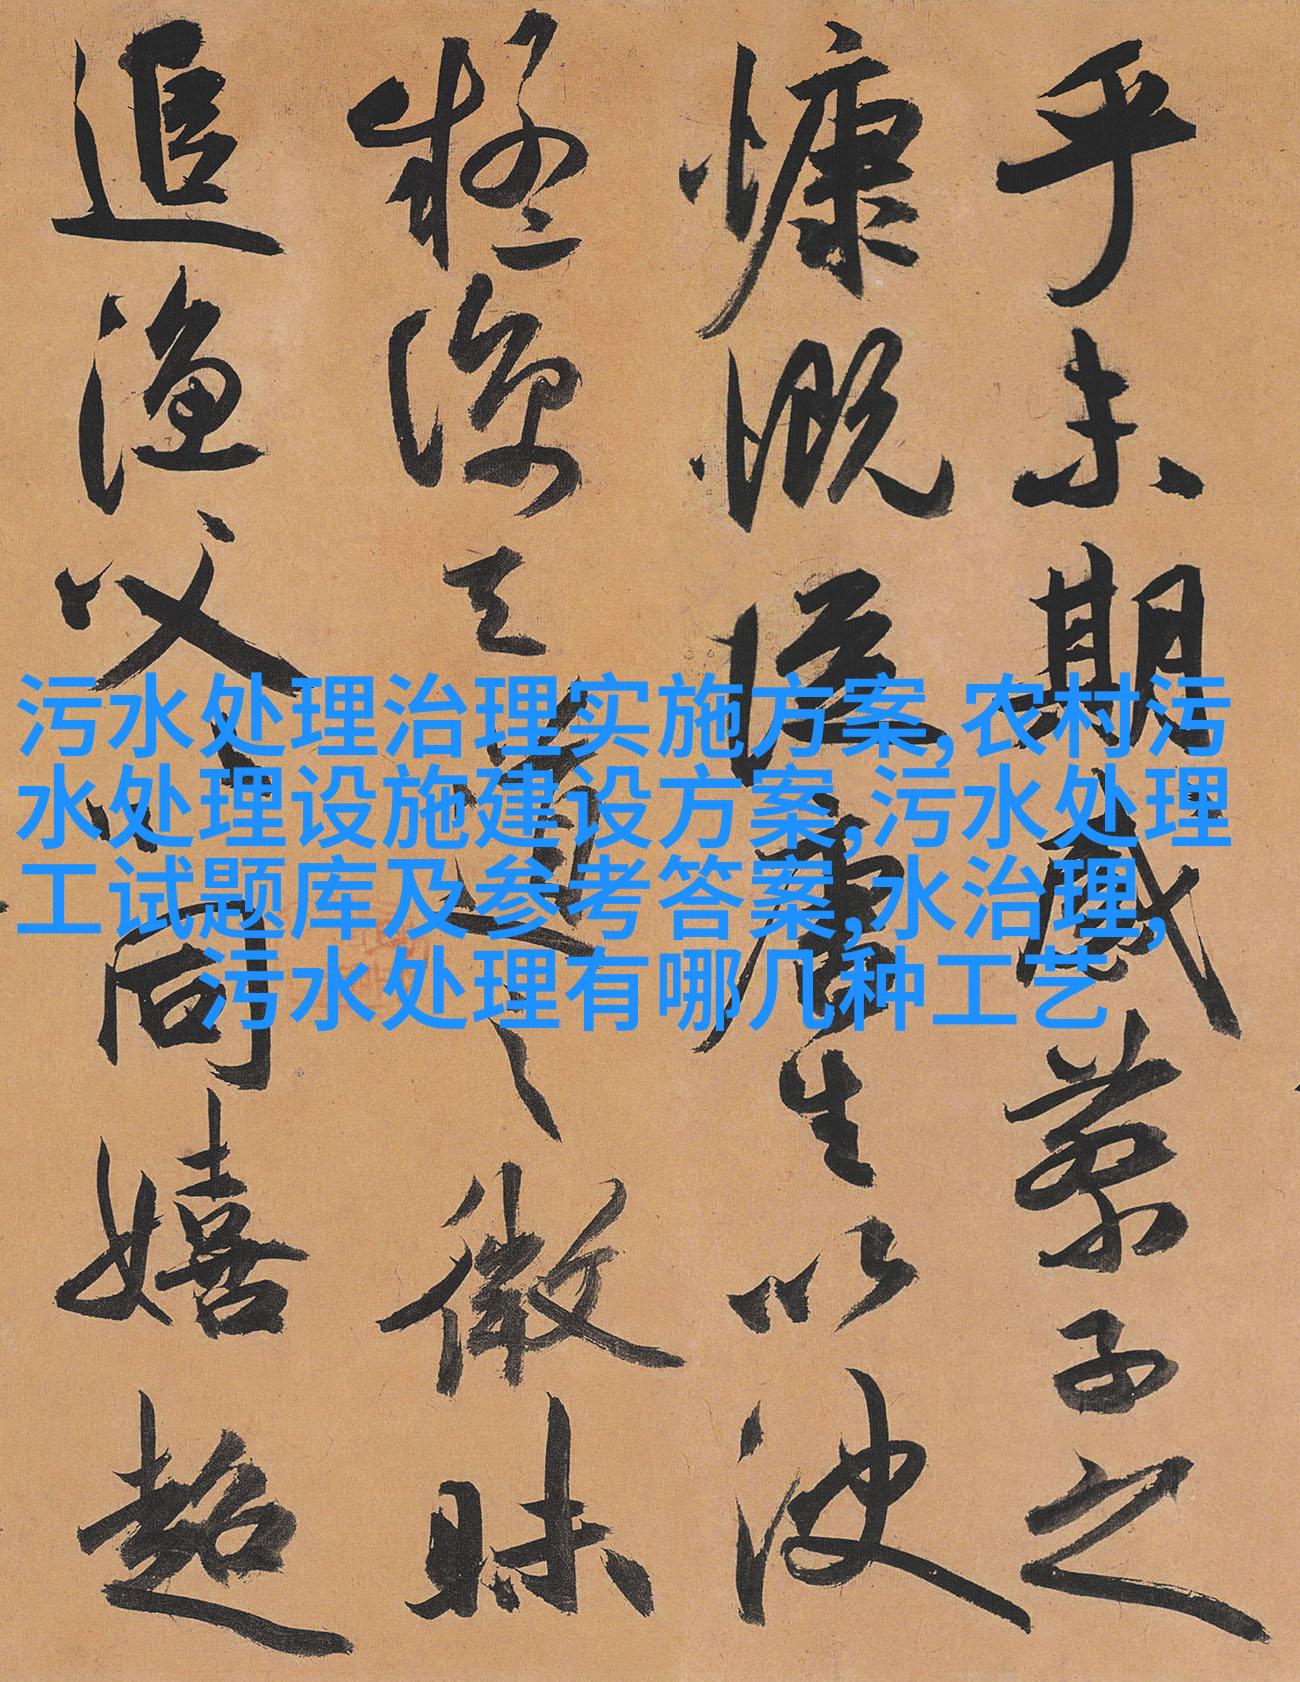 乎未期感蔡子之
慷慨從唐生以決
疑諒天道之微昧
追漁父以同嬉超
污水处理治理实施方案,农村污
水处理设施建设方案,污水处理
工试题库及参考答案,水治理,
污水处理有哪几种工艺